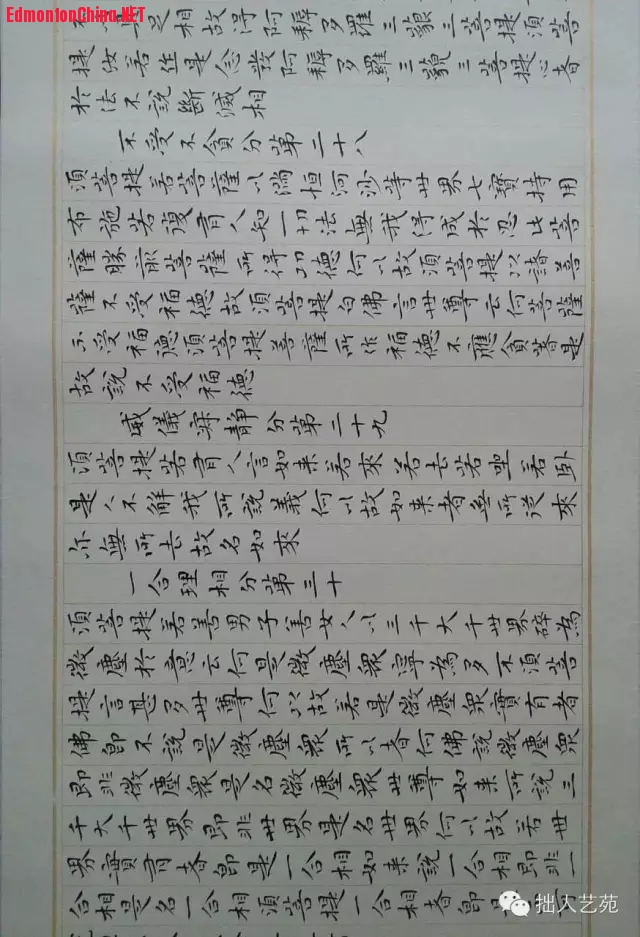 EdmontonChina.NET
足相故得阿耨多羅三藐三菩提須菩
提汝若作是念發阿耨多羅三藐三菩提心者
於法不說斷滅相
不受不貪分第二十八
須菩提若菩薩以滿恒河沙等世界七寶持用
布施若復有人知一切法無我得成於忍此菩
薩勝前菩薩所得功德何以故須菩提以諸菩
薩不受福德故須菩提白佛言世尊云何菩薩
不受福德須菩提菩薩所作福德不應貪著是
故說不受福德
威儀寂靜分第二十九
須菩提若有人言如来若來若去若坐若卧
是人不解我所說義何以故如来者無所從來
亦無所去故名如來
一合理相分第三十
須菩提若善男子善女人以三千大千世界碎為
微塵於意云何是微塵眾寧為多不須菩
提言甚多世尊何以故若是微塵眾實有者
佛即不說是微塵眾所以者何佛說微塵眾
即非微塵眾是名微塵眾世尊如来所說三
千大千世界即非世界是名世界何以故若世
界實有者即是一合相如来說一合相即非一
合相是名一合相須菩提一合相者即
拙人艺苑